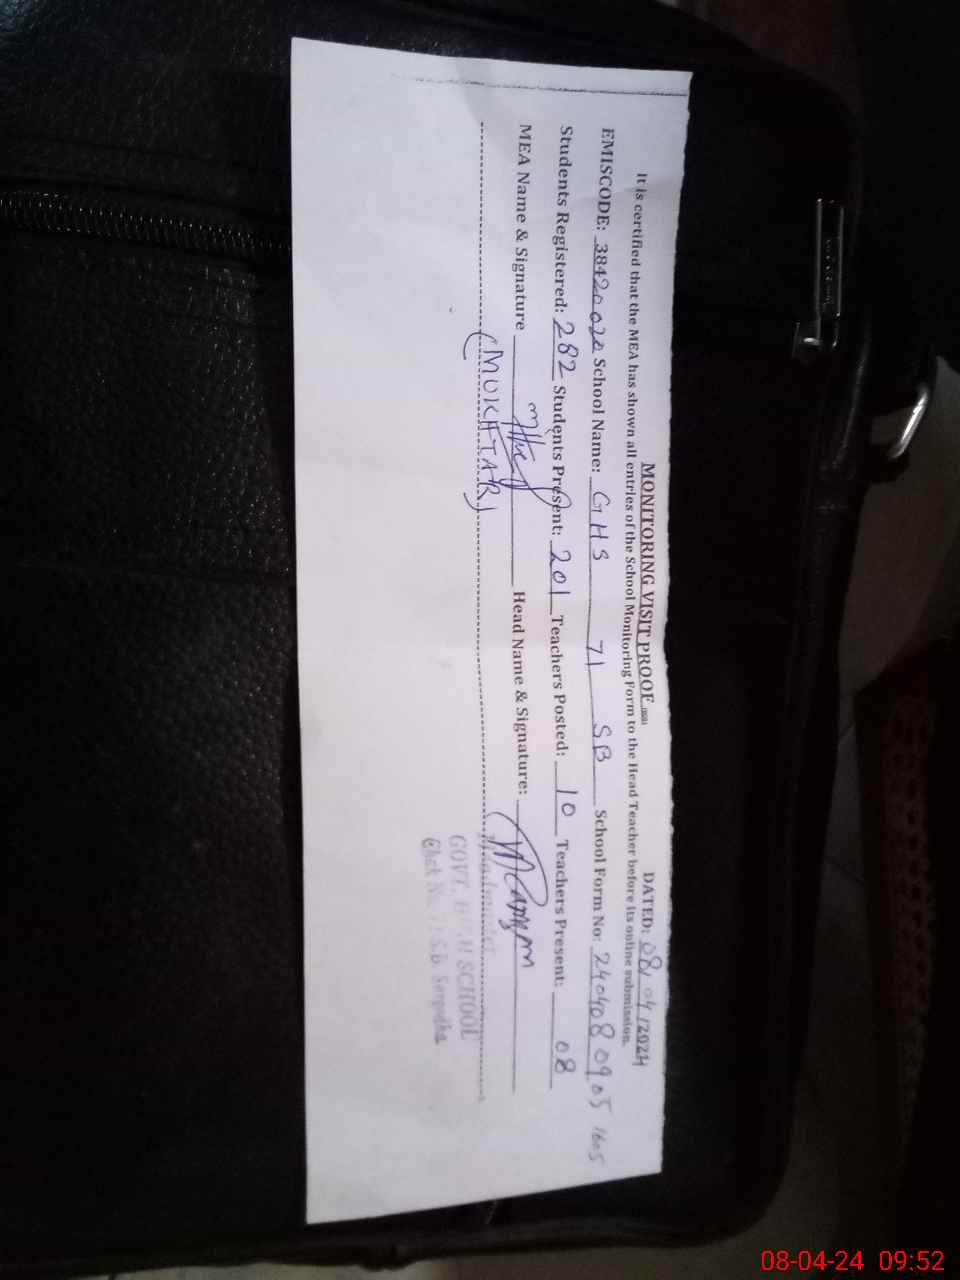 MONITORING VISIT PROOF
DATED: 08/04/2024
It is certified that the MEA has shown all entries of the School Monitoring Form to the Head Teacher before its online submission.
EMISCODE: 38420020 School Name: GHS 71 SB School Form No: 2404080905 1605
Students Registered: 282 Students Present: 201 Teachers Posted: 10 Teachers Present: 08
MEA Name & Signature Head Name & Signature:
(MUKHTAR)
GOVT. HIGH SCHOOL
Chak No. 71 S.B. Sargodha
08-04-24 09:52